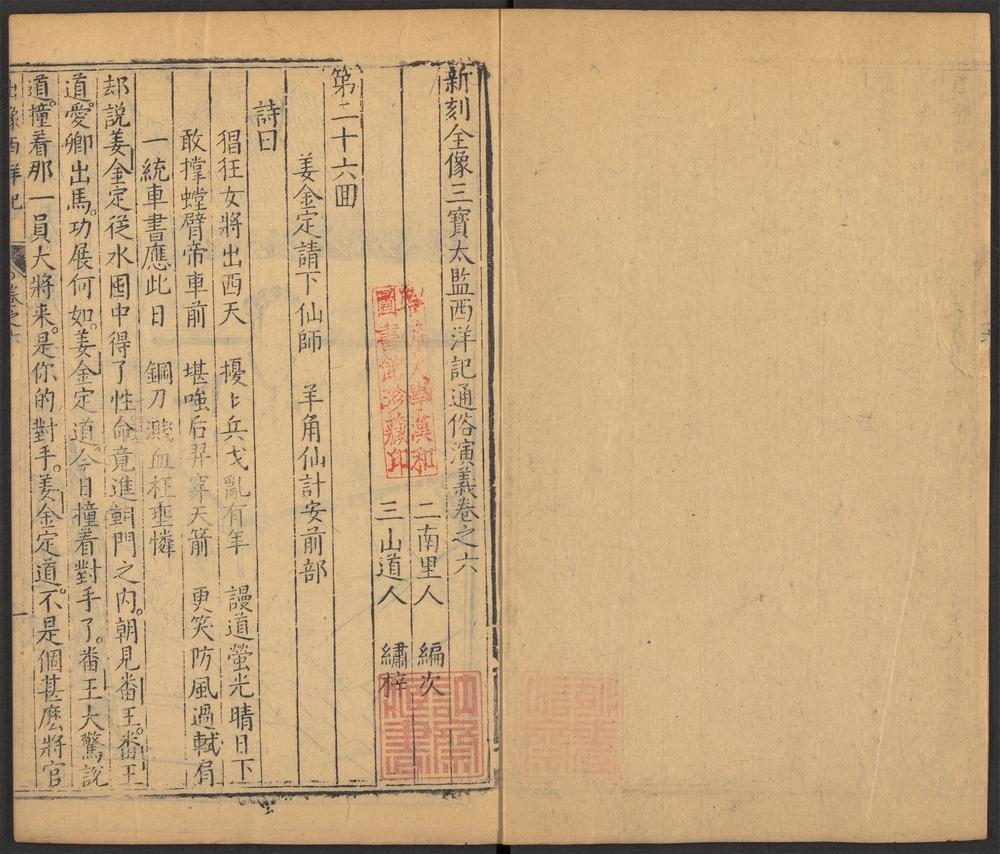 新刻全像三寶太監西洋記通俗演義卷之六
二南里人 編次
三山道人 繡梓
哈佛大學漢和
圖書館珍藏印
第二十六囬
姜金定請下仙師 羊角仙計安前部
詩曰
猖狂女將出西天 擾〻兵戈亂有年 謾道螢光晴日下
敢撑螳臂帝車前 堪嗤后羿穿天箭 更笑防風過軾肩
一統車書應此日 鋼刀濺血枉垂憐
却説姜金定從水囤中得了性命竟進朝門之内。朝見畨王。畨王
道。愛卿出馬。功展何如。姜金定道。今日撞着對手了。畨王大驚説
道。撞着那一員大將来。是你的對手。姜金定道。不是個甚麽將官
出像西洋記
卷之六
一